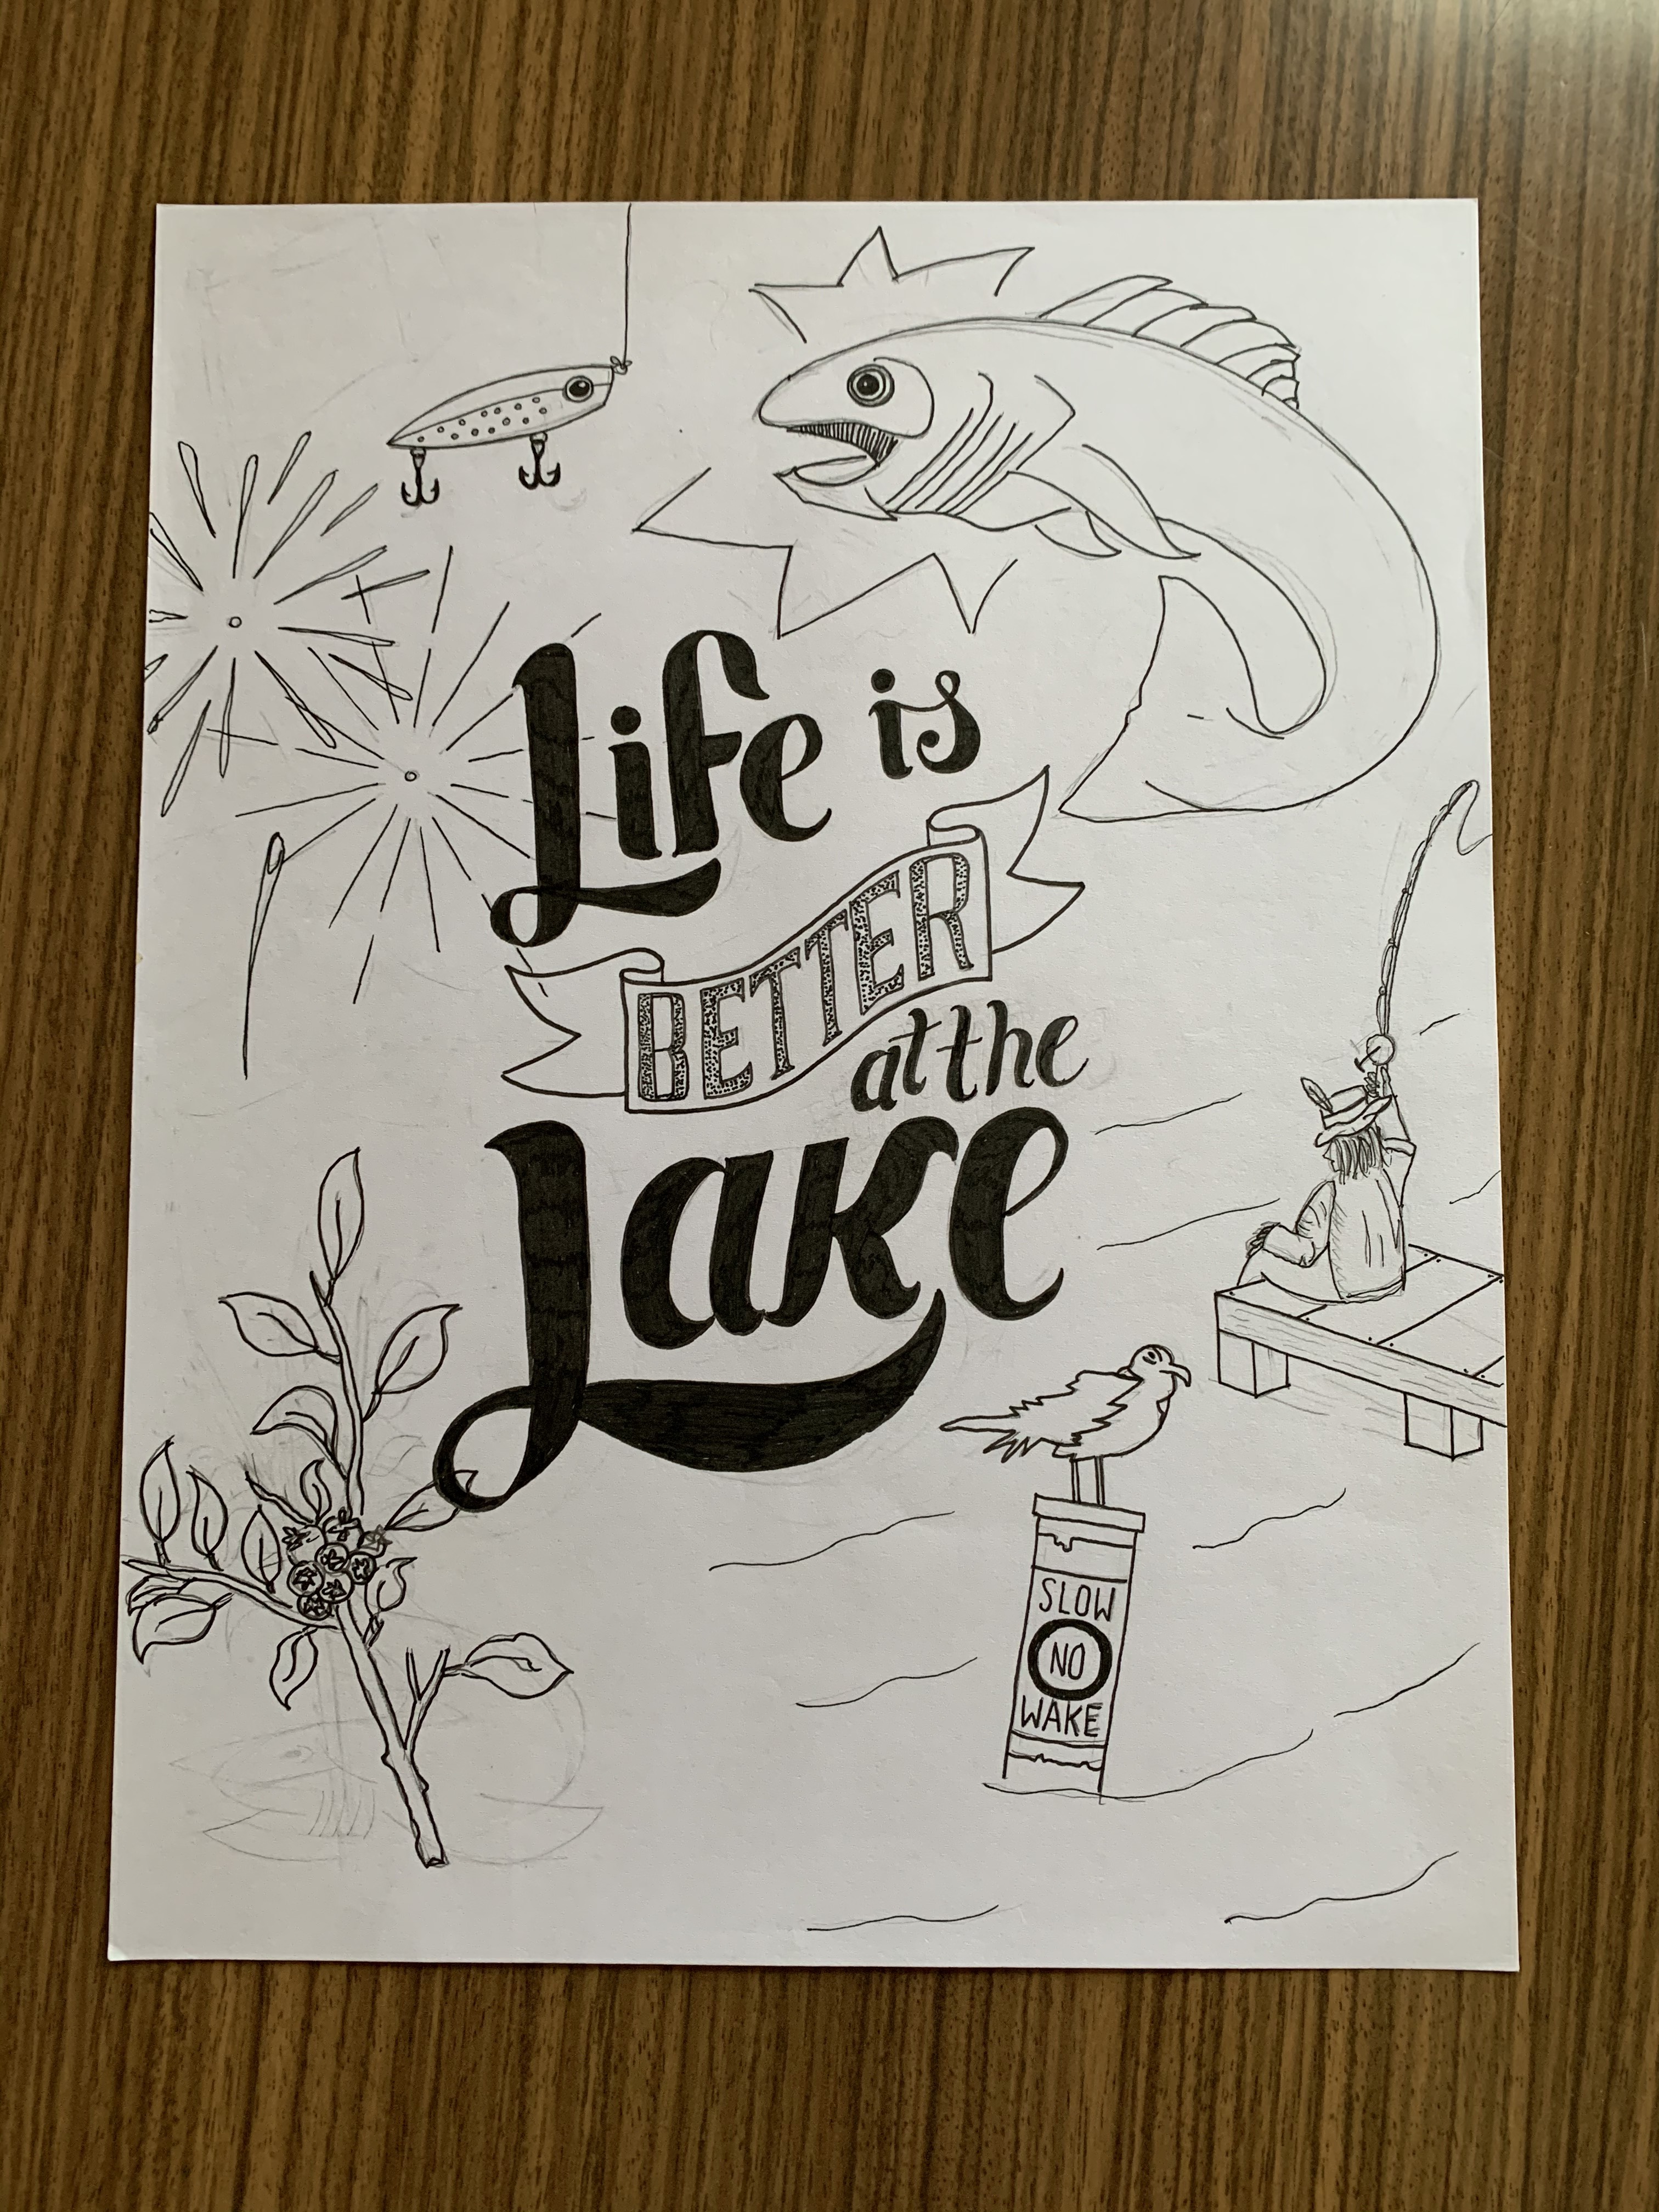 Life is
BETTER
at the
Lake
SLOW
NO
WAKE